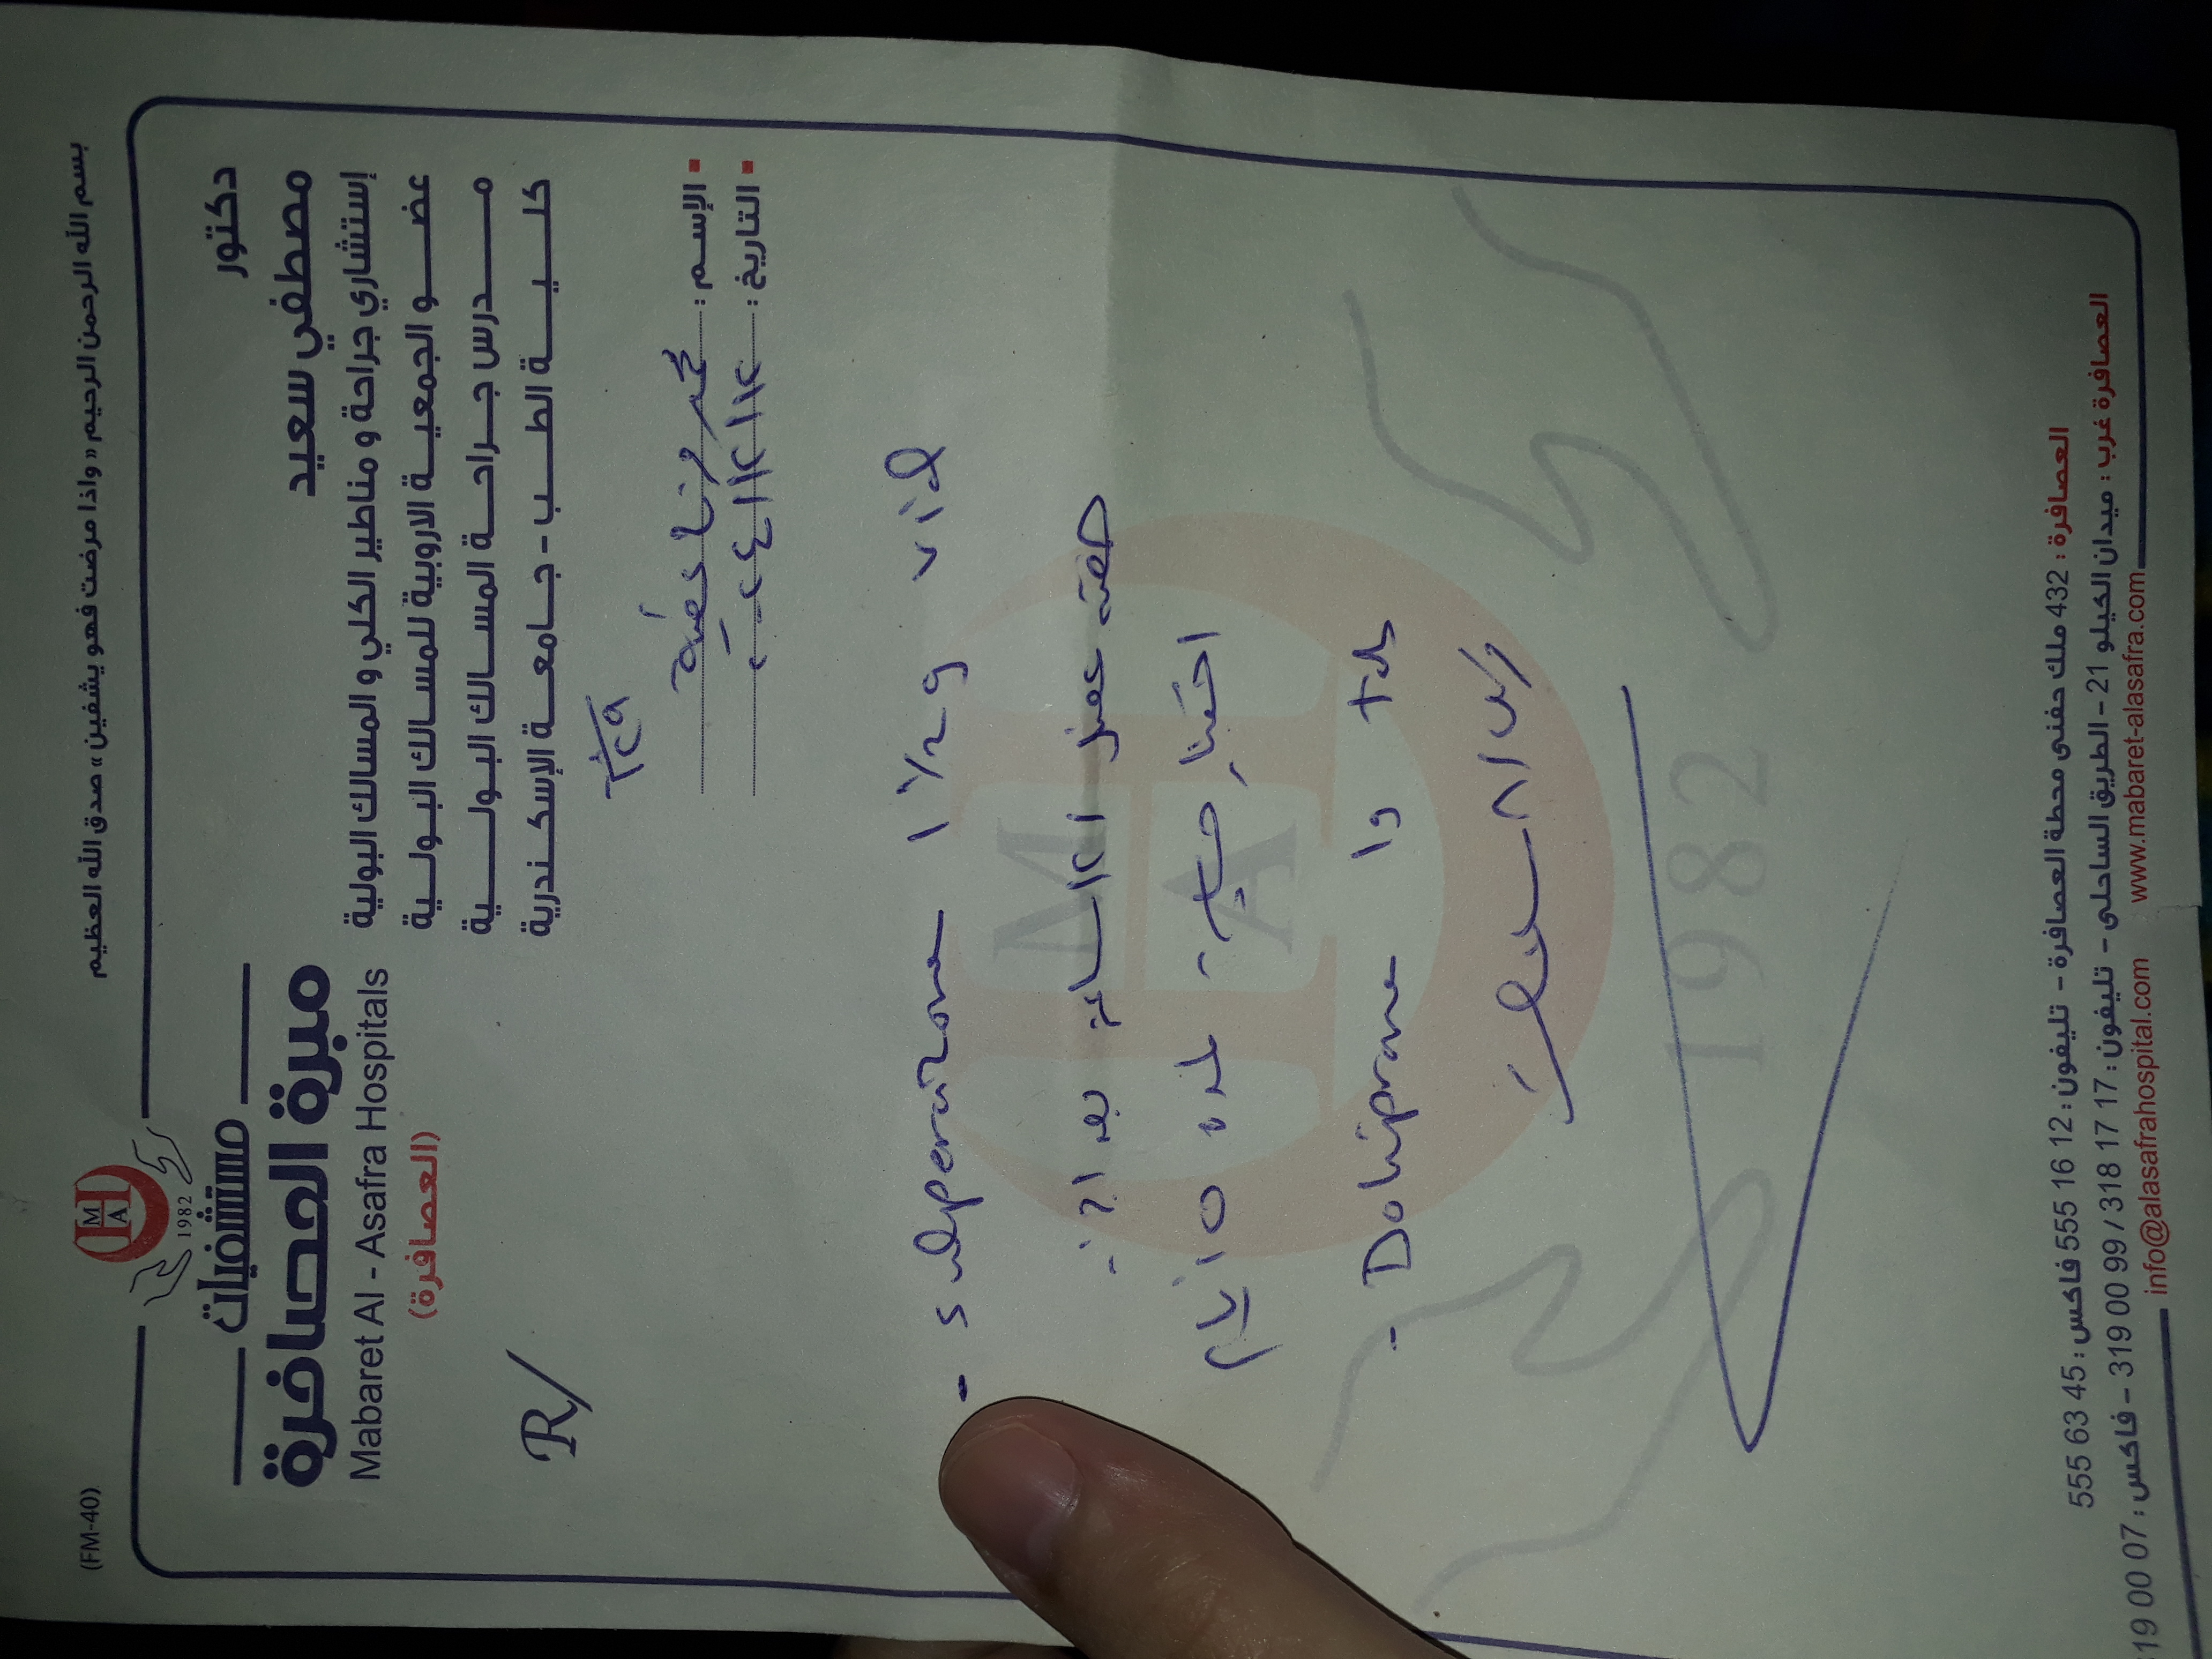 (FM-40)
بسم الله الرحمن الرحيم « واذا مرضت فهو يشفين » صدق الله العظيم
MA
1982
مستشفيات
مبرة العصافرة
Mabaret Al - Asafra Hospitals
(العصافرة)
دكتور
مصطفي سعيد
إستشاري جراحة و مناطير الكلي و المسالك البولية
عضو الجمعية الاروبية للمسالك البولية
مدرس جراحة المسالك البولية
كلية الطب - جامعة الإسكندرية
R/
الإسم : محمد
التاريخ :
- sulperazone 1 1/2 g vial
حقنه عضل / ١٢ ساعة بعد
اختبار حساسية لمدة ٥ ايام
- Doliprane 1g tab
قرص / ٨ س
MA
1982
العصافرة : 432 ملك حفنى محطة العصافرة - تليفون : 12 16 555 فاكس : 45 63 555
العصافرة غرب : ميدان الكيلو 21 - الطريق الساحلى - تليفون : 17 17 318 / 99 00 319 - فاكس : 07 00 319
info@alasafrahospital.com www.mabaret-alasafra.com